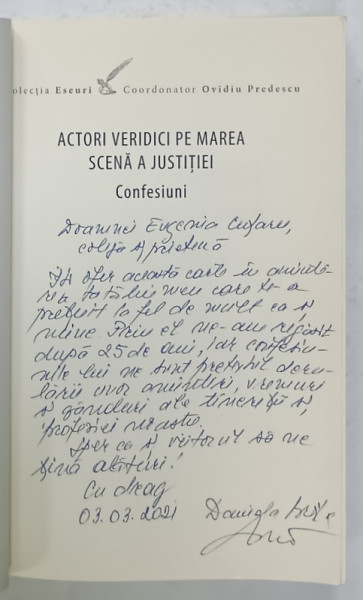 olecția Eseuri Coordonator Ovidiu Predescu
ACTORI VERIDICI PE MAREA
SCENĂ A JUSTIȚIEI
Confesiuni
Doamnei Eugenia
colegă și prietenă
Îți ofer această carte în aminti-
rea tatălui meu care te-a
prețuit la fel de mult ca și
mine. Prin el ne-am regăsit
după 25 de ani, iar confesiu-
nile lui ne sunt pretextul deru-
lării unor amintiri, vremuri
și gânduri ale tinereții și
profesiei noastre.
Sper ca și viitorul să ne
țină alături!
Cu drag
03.03.2021 Daniela